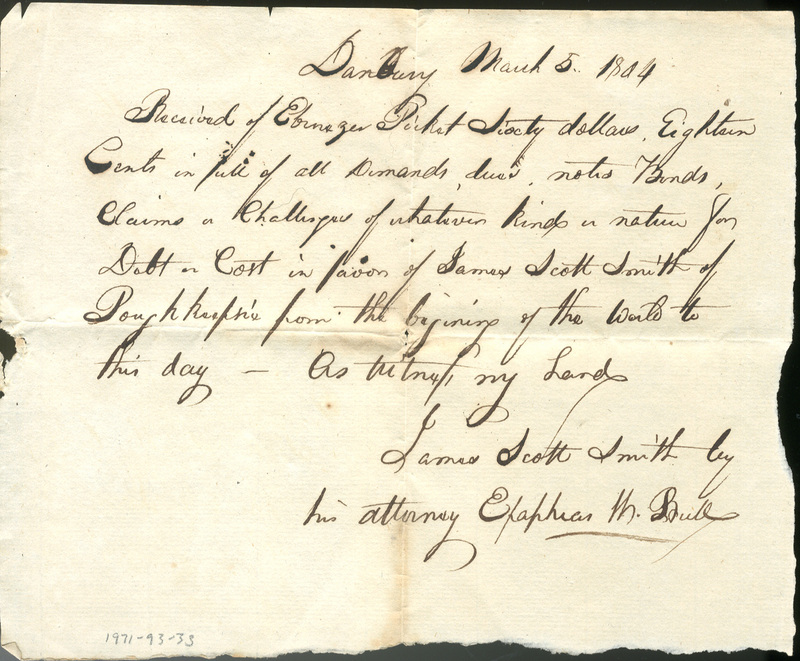 Danbury March 5. 1804
Received of Ebenezer Picket Sixty dollars, Eighteen
Cents in full of all Demands, dues, notes Bonds,
Claims or Challenges of whatever kind or nature for
Debt or Cost in favor of James Scott Smith of
Poughkeepsie from the begining of the World to
this day — As Witness my hand
James Scott Smith by
his attorney Epaphras W. Bull
1971-93-33